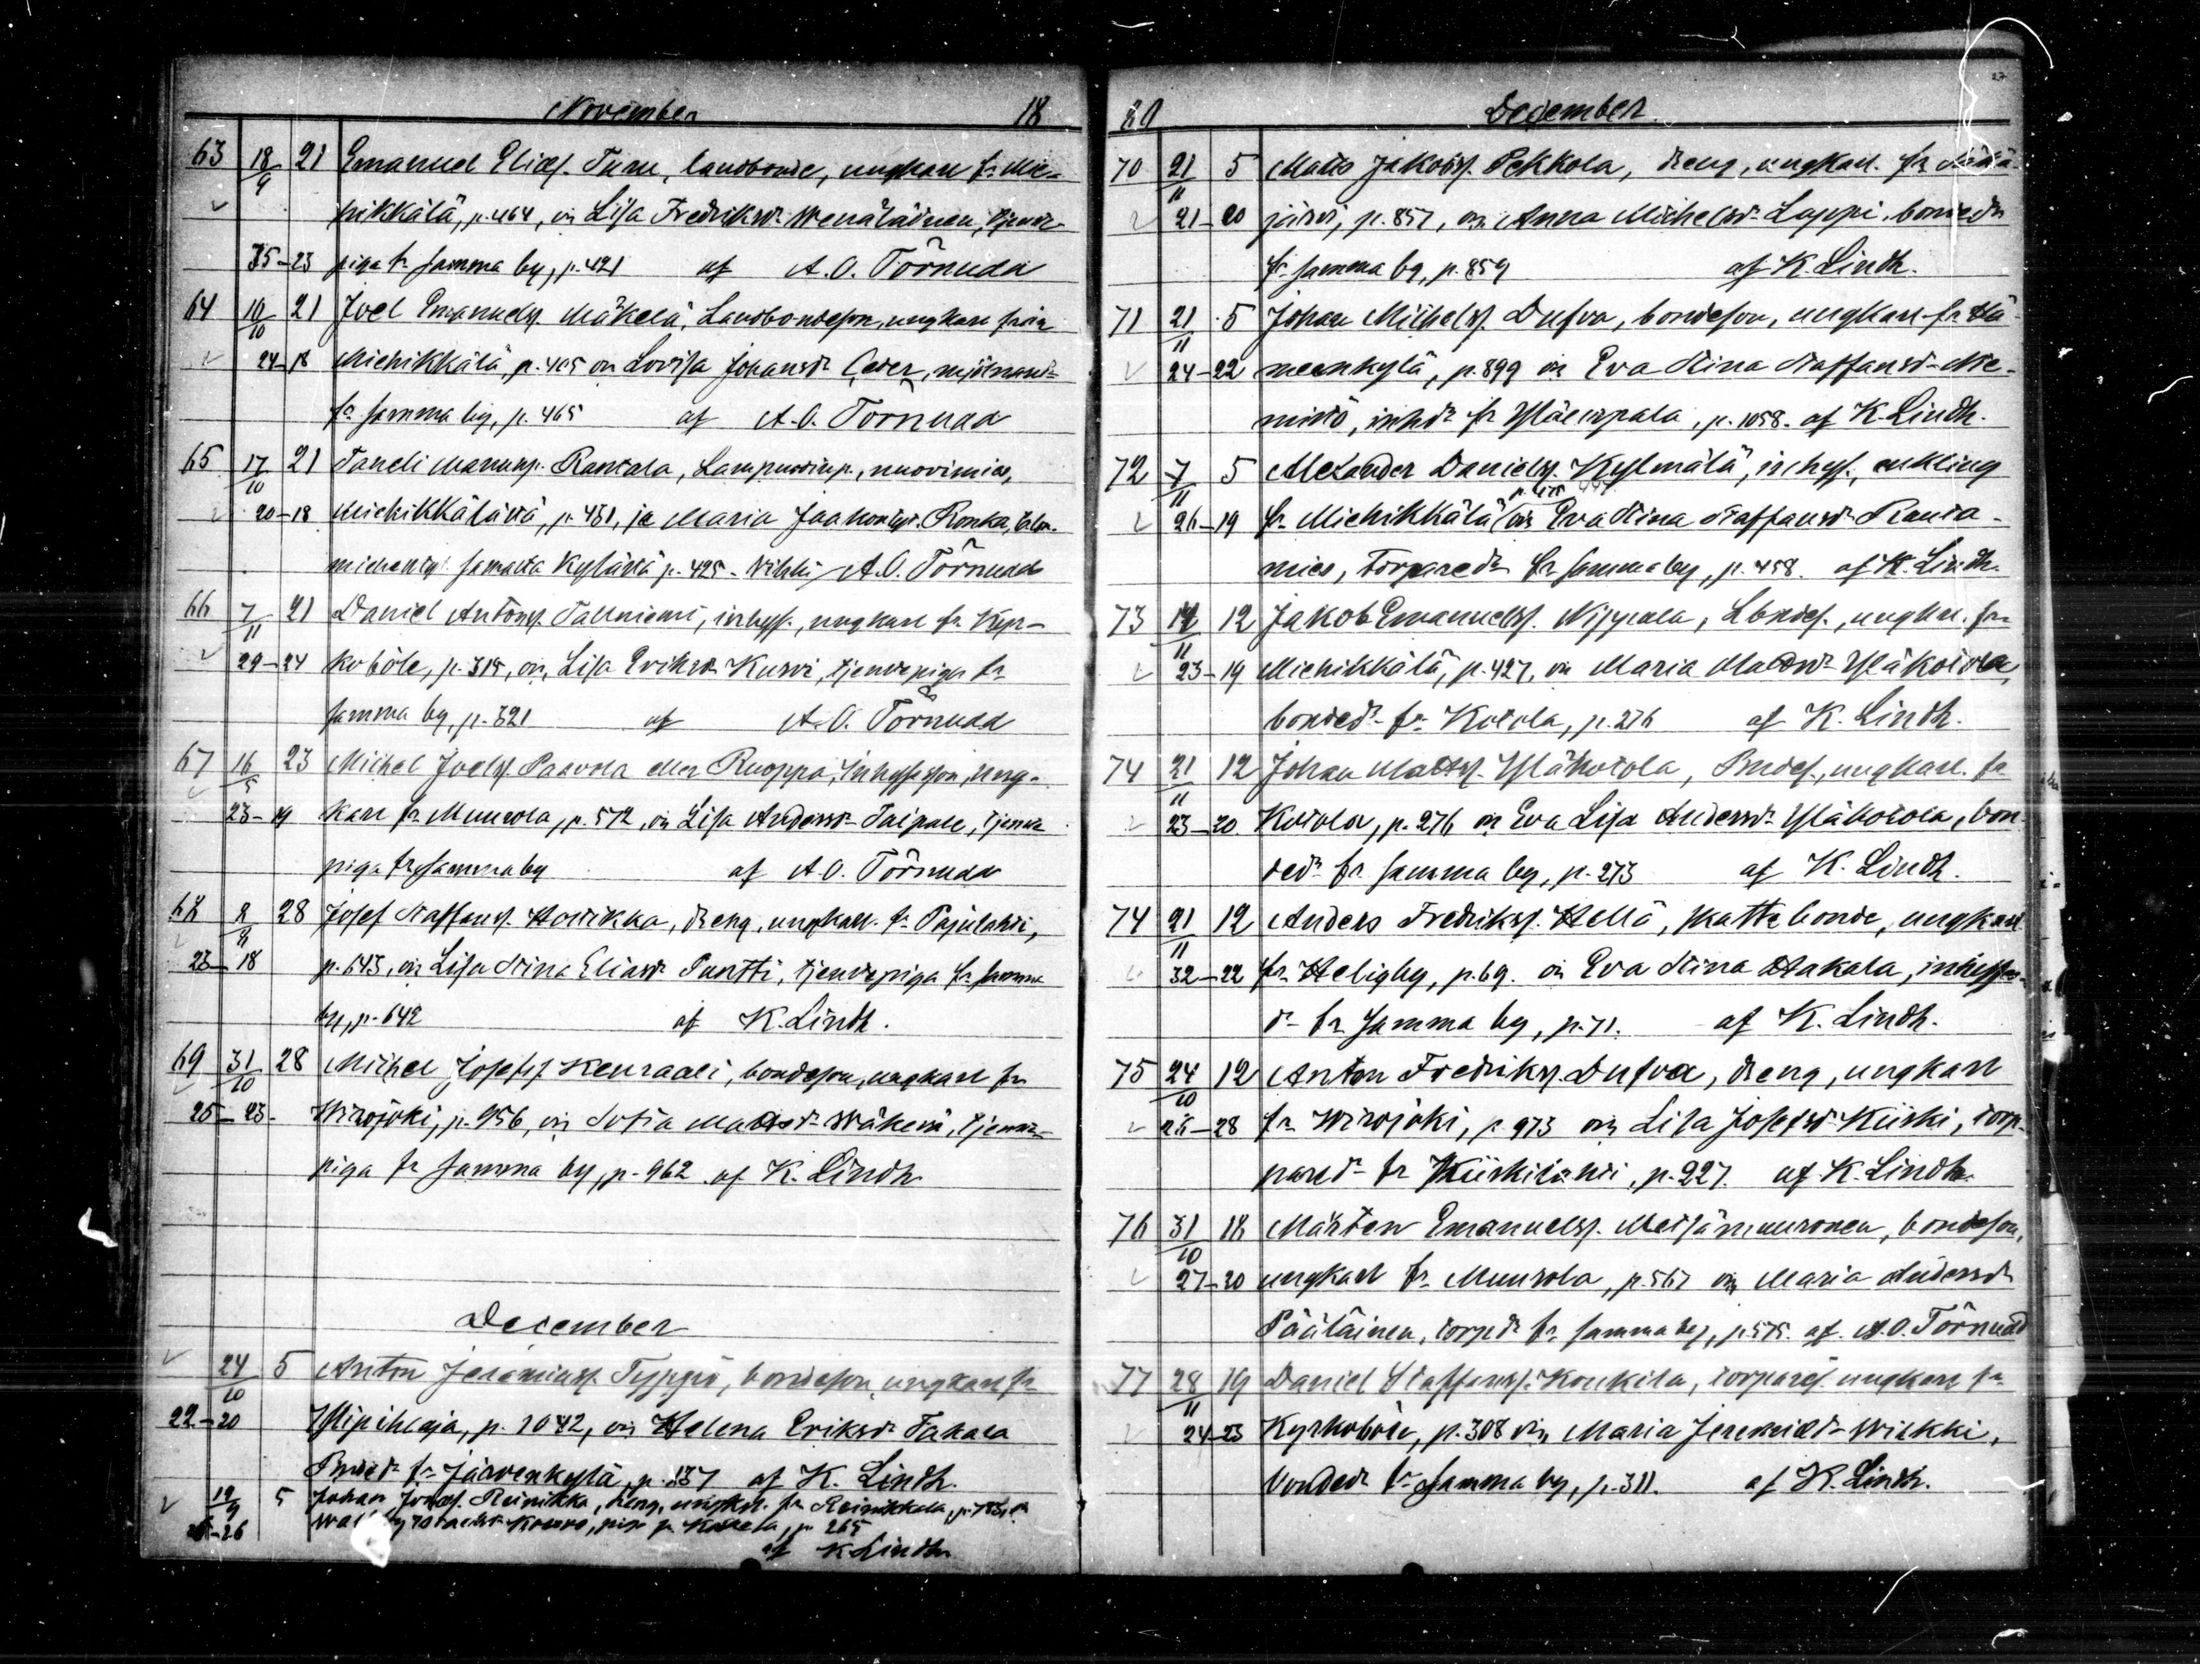 November 18
63 18/9 21 Emanuel Eliæs. Turu, landbonde, ungkarl fr. Mie-
hikkälä, p. 464, o. Lisa Fredriksdr Wenäläinen, tjenste-
35-23 piga fr. samma by, p. 421 af A. O. Törnudd
64 10/10 21 Joel Emanuels. Mäkelä, Landbondeson, ungkarl från
24-18 Miehikkälä, p. 405 o. Lovisa Johansdr Ceder, mjölnaredr
fr. samma by, p. 465 af A. O. Törnudd
65 17/10 21 Taneli Rantala, Lampuotinp., nuorimies,
20-18 Miehikkälästä, p. 451, ja Maria Jaakontyt. Ronka, talon-
miehentyt. samasta kylästä p. 425. Vihki A. O. Törnudd
66 7/11 21 Daniel Antons. Tallniemi, inhys., ungkarl fr. Kyr-
29-24 koböle, p. 315, o. Lisa Eriksdr Kurvi, tjenstepiga fr.
samma by, p. 321 af A. O. Törnudd
67 16/5 23 Mikel Joels. Paavola eller Ruoppa, Inhyseson, ung-
23-19 karl fr. Muurola, p. 572, o. Lisa Andersdr Taipale, tjenste-
piga fr. samma by af A. O. Törnudd
68 28 Josef Staffans. Hovikka, dreng, ungkarl. fr. Pajulahti,
23-18 p. 643, o. Lisa Stina Eliasdr Pantti, tjenstepiga fr. samma
by, p. 642 af K. Lindh.
69 31/10 28 Mikel Josefs. Kenraali, bondeson, ungkarl fr.
25-23 Wirojoki, p. 956, o. Sofia Matsdr Mäkelä, tjenste-
piga fr. samma by, p. 962 af K. Lindh
December
24/10 5 Anton Jeremiass. Typpö, bondeson, ungkarl fr.
22-20 Ylipihlaja, p. 1042, o. Helena Eriksdr Takala
Bondedr fr. Järvenkylä, p. 137 af K. Lindh.
19/9 5 Johan Josefs. Reinikka, dreng, ungkarl. fr. Reinikkala, p. 783, o.
-26 p. 265
af K Lindh
80 December.
70 21/11 5 Matts Jakobss. Pekkola, dreng, ungkarl. fr.
21-20 järvi, p. 857, o. Anna Michelsdr Lappi, bondedr
fr. samma by, p. 859 af K. Lindh.
71 21/11 5 Johan Michels. Dufva, bondeson, ungkarl fr. Hä-
24-22 meenkylä, p. 899 o. Eva Stina Staffansdr Nie-
mistö, inhdr fr. Yläurpala, p. 1058. af K. Lindh.
72 7/11 5 Alexander Daniels. Kylmälä, inhys., enkling
26-19 fr. Miehikkälä o. Eva Stina Staffansdr Ranta-
mies, Torparedr fr. samma by, p. 458. af K. Lindh.
73 14/11 12 Jakob Emanuelss. Nippala, Lbndes., ungkarl. fr.
23-19 Miehikkälä, p. 427, o. Maria Matsdr Yläkotola,
bondedr fr. Kotola, p. 276 af K. Lindh.
74 21/11 12 Johan Matss. Yläkotola, Bndes., ungkarl. fr.
23-20 Kotola, p. 276 o. Eva Lisa Andersdr Yläkotola, bon-
dedr fr. samma by, p. 273 af K. Lindh.
74 21/11 12 Anders Fredrikss. Hellä, skattebonde, ungkarl
32-22 fr. Heligby, p. 69. o. Eva Stina Hakala, inhyses-
dr fr. samma by, p. 71. af K. Lindh.
75 24/10 12 Anton Fredrikss. Dufva, dreng, ungkarl
-28 fr. Wirojoki, p. 973 o. Lisa Josefsdr Kiiski, torp-
paredr fr. Kiiskilahti, p. 227. af K. Lindh.
76 31/10 18 Mårten Emanuelss. bondeson,
27-20 ungkarl fr. Muurola, p. 567 o. Maria Andersdr
Pääläinen, torpdr fr. samma by, p. 575. af A. O. Törnudd
77 28/11 19 Daniel Staffanss. Koukila, torpares. ungkarl fr.
24-23 Kyrkoböle, p. 308 o. Maria Jeremiædr Wirkki,
bondedr fr. samma by, p. 311. af K. Lindh.